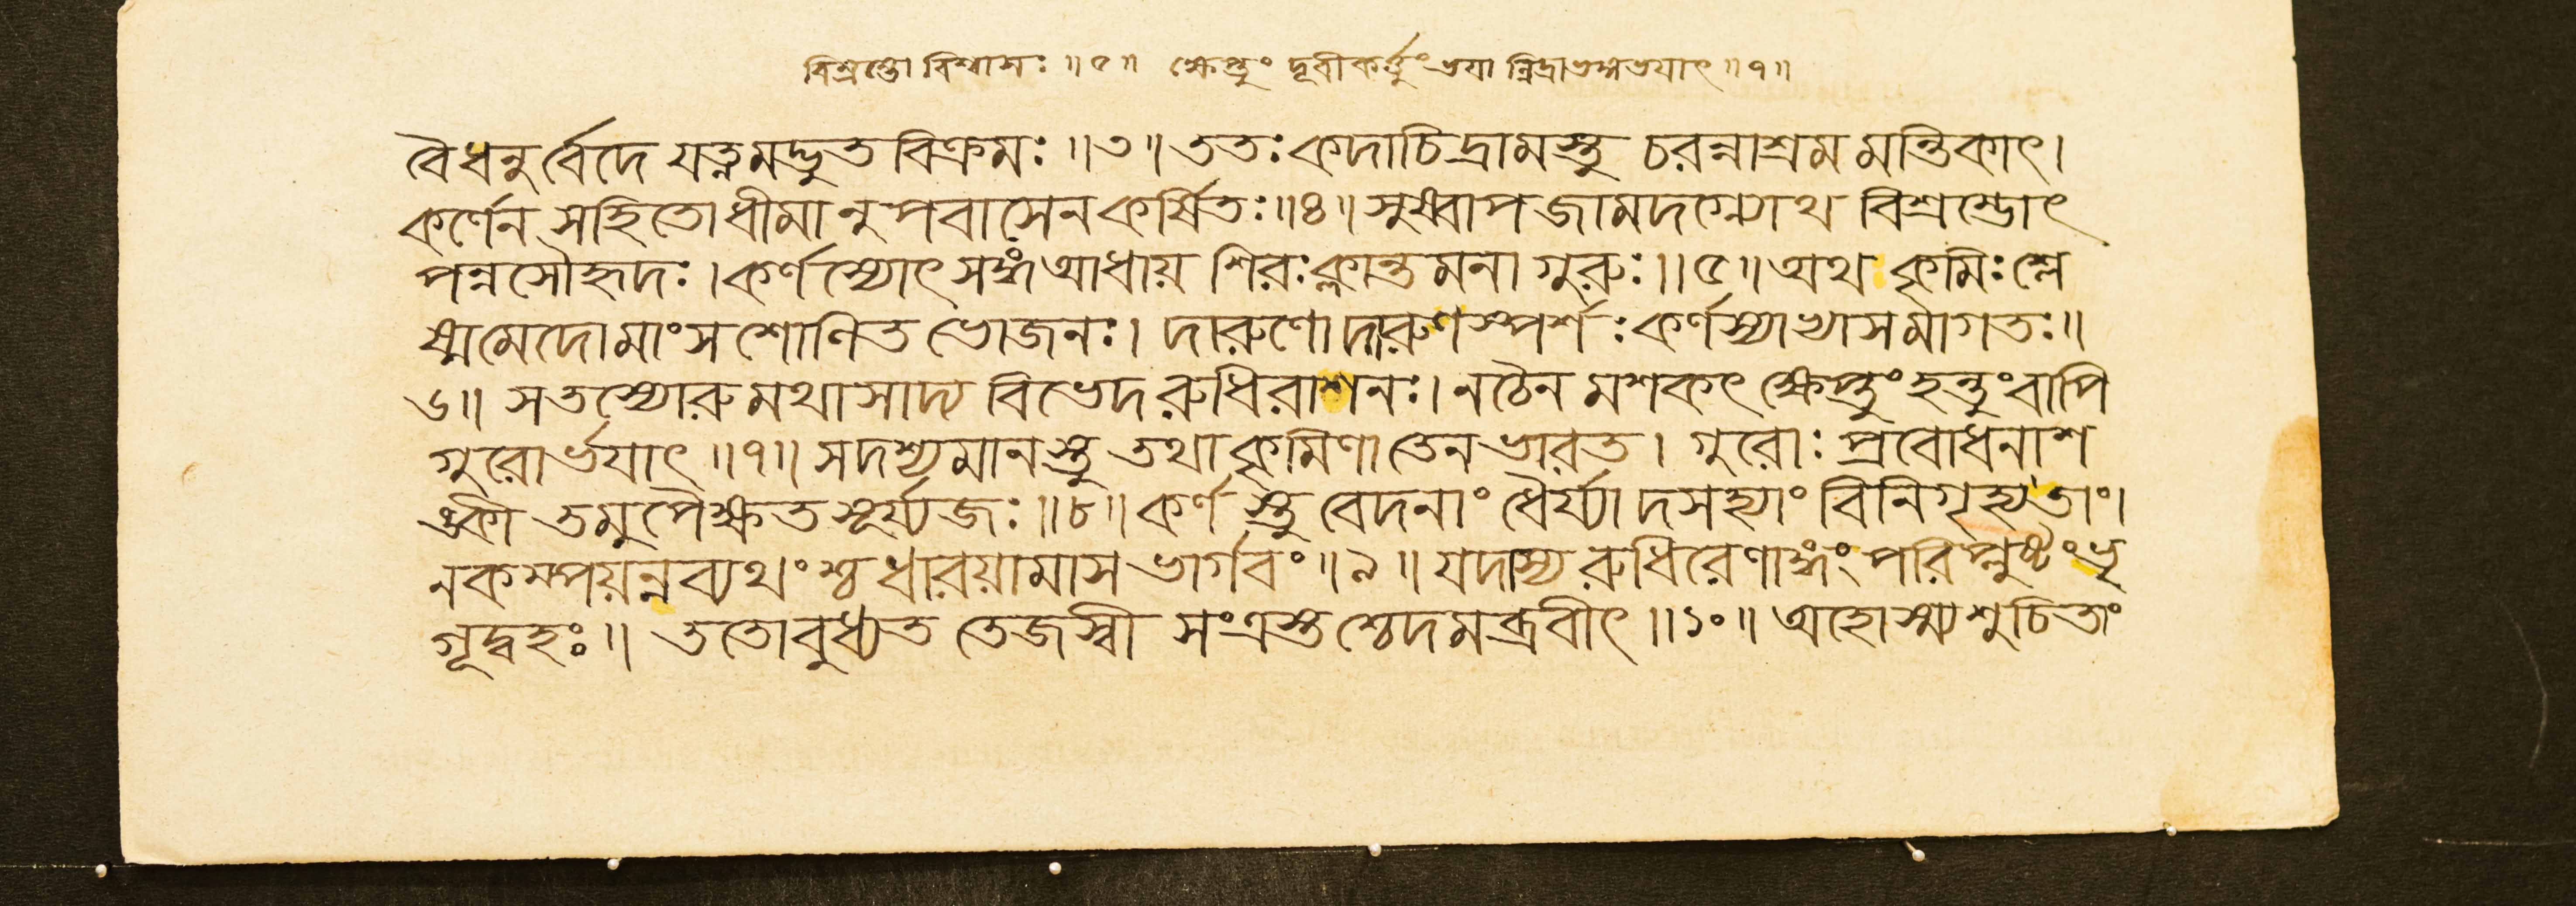 বিশ্রব্ধো বিশ্বাসঃ ॥৫॥ ক্ষেপ্তুং দূরীকর্ত্তুং ভয়া ন্নিদ্রাভঙ্গভয়াৎ ॥৭॥
বৈধনুর্বেদে যত্নমদ্ভুত বিক্রমঃ ॥৩॥ ততঃ কদাচিদ্রামস্তু চরন্নাশ্রম মন্তিকাৎ।
কর্ণেন সহিতো ধীমানুপবাসেন কর্ষিতঃ ॥৪॥ সুষ্বাপ জামদগ্ন্যোথ বিশ্রম্ভোৎ
পন্নসৌহৃদঃ। কর্ণস্যোৎসঙ্গং আধায় শিরঃক্লান্তমনা গুরুঃ ॥৫॥ অথ কৃমিঃ শ্লে
ষ্মমেদোমাংস শোণিত ভোজনঃ। দারুণো দারুণস্পর্শঃ কর্ণস্যাখ্যা সমাগতঃ॥
৬॥ সতস্যোরুমথাসাদ্য বিভেদ রুধিরাশনঃ। নচৈন মশকৎ ক্ষেপ্তুং হন্তুং বাপি
গুরোর্ভয়াৎ ॥৭॥ সদশ্যমানস্তু তথা কৃমিণা তেন ভারত। গুরোঃ প্রবোধনাশ
ঙ্কী তমুপৈক্ষত সূর্য্যজঃ ॥৮॥ কর্ণস্তু বেদনাং ধৈর্য্যাদসহ্যাং বিনিগৃহ্যতাং।
নকম্পয়ন্নব্যথংশ্চ ধারয়ামাস ভার্গবং ॥৯॥ যদাস্য রুধিরেণাঙ্গং পরিপ্লুষ্টং ভৃ
গূদ্বহঃ॥ ততোবুধ্যত তেজস্বী সংত্রস্তশ্চেদমব্রবীৎ ॥১০॥ অহোস্ম্যশুচিতাং